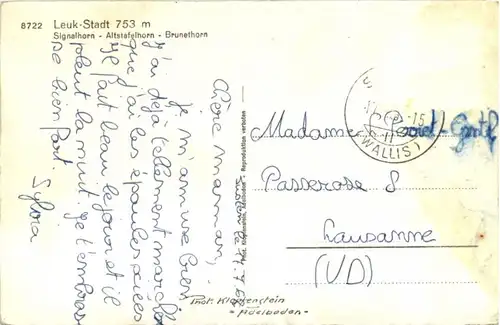 8722 Leuk-Stadt 753 m
Signalhorn - Altstafelhorn - Brunethorn
Chère Maman,
Je m'amuse bien
j'ai déjà tellement marché
que j'ai les épaules
Il fait beau le jour et il
pleut la nuit. Je t'embrasse
bien fort.
Sylvia
Phot. Klopfenstein, Adelboden - Reproduktion verboten
(WALLIS)
Madame
Passerose 8
Lausanne
(VD)
Phot. Klopfenstein
- Adelboden -